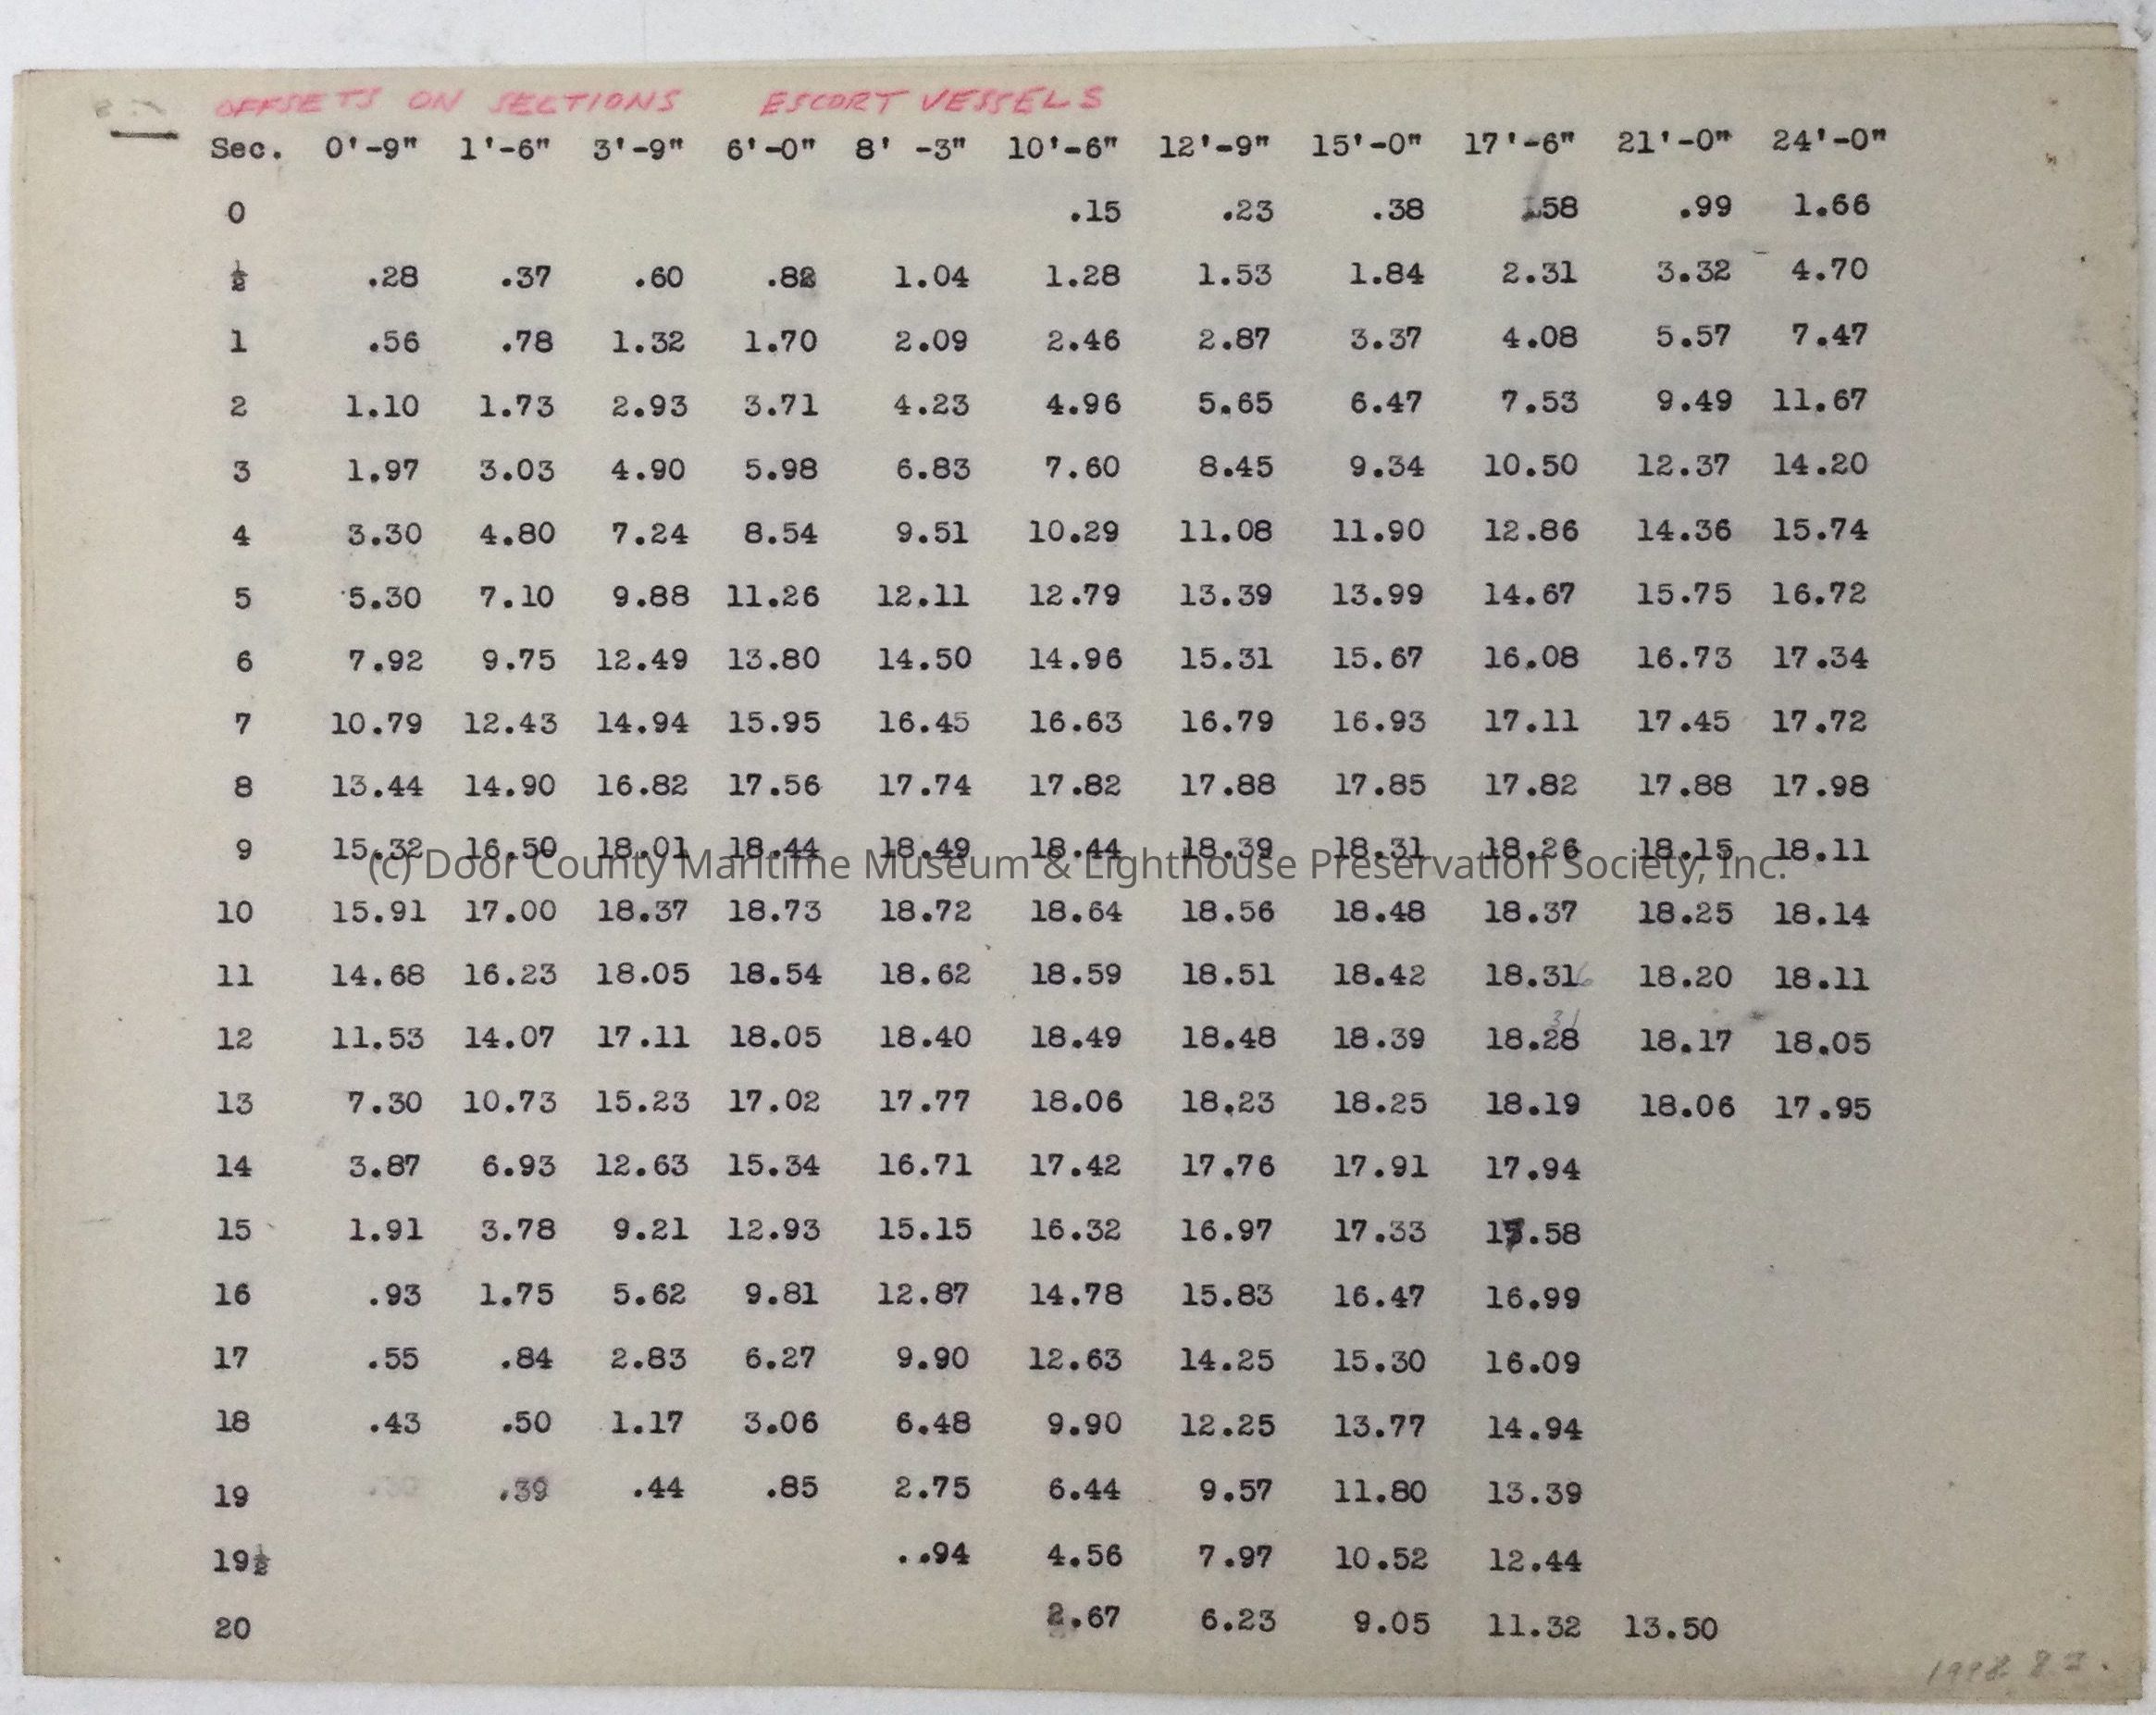 OFFSETS ON SECTIONS ESCORT VESSELS
Sec. 0'-9" 1'-6" 3'-9" 6'-0" 8' -3" 10'-6" 12'-9" 15'-0" 17'-6" 21'-0" 24'-0"
0 .15 .23 .38 .58 .99 1.66
½ .28 .37 .60 .82 1.04 1.28 1.53 1.84 2.31 3.32 4.70
1 .56 .78 1.32 1.70 2.09 2.46 2.87 3.37 4.08 5.57 7.47
2 1.10 1.73 2.93 3.71 4.23 4.96 5.65 6.47 7.53 9.49 11.67
3 1.97 3.03 4.90 5.98 6.83 7.60 8.45 9.34 10.50 12.37 14.20
4 3.30 4.80 7.24 8.54 9.51 10.29 11.08 11.90 12.86 14.36 15.74
5 5.30 7.10 9.88 11.26 12.11 12.79 13.39 13.99 14.67 15.75 16.72
6 7.92 9.75 12.49 13.80 14.50 14.96 15.31 15.67 16.08 16.73 17.34
7 10.79 12.43 14.94 15.95 16.45 16.63 16.79 16.93 17.11 17.45 17.72
8 13.44 14.90 16.82 17.56 17.74 17.82 17.88 17.85 17.82 17.88 17.98
9 15.32 16.50 18.01 18.44 18.49 18.44 18.39 18.31 18.26 18.15 18.11
(c) Door County Maritime Museum & Lighthouse Preservation Society, Inc.
10 15.91 17.00 18.37 18.73 18.72 18.64 18.56 18.48 18.37 18.25 18.14
11 14.68 16.23 18.05 18.54 18.62 18.59 18.51 18.42 18.31 18.20 18.11
31
12 11.53 14.07 17.11 18.05 18.40 18.49 18.48 18.39 18.28 18.17 18.05
13 7.30 10.73 15.23 17.02 17.77 18.06 18.23 18.25 18.19 18.06 17.95
14 3.87 6.93 12.63 15.34 16.71 17.42 17.76 17.91 17.94
15 1.91 3.78 9.21 12.93 15.15 16.32 16.97 17.33 17.58
16 .93 1.75 5.62 9.81 12.87 14.78 15.83 16.47 16.99
17 .55 .84 2.83 6.27 9.90 12.63 14.25 15.30 16.09
18 .43 .50 1.17 3.06 6.48 9.90 12.25 13.77 14.94
19 .39 .44 .85 2.75 6.44 9.57 11.80 13.39
19½ ..94 4.56 7.97 10.52 12.44
20 2.67 6.23 9.05 11.32 13.50